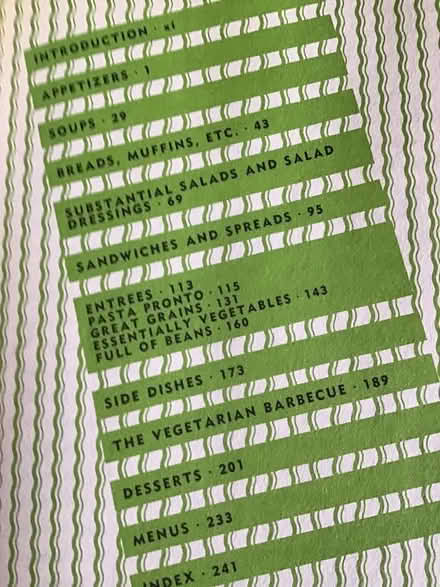 INTRODUCTION · xi
APPETIZERS · 1
SOUPS · 29
BREADS, MUFFINS, ETC. · 43
SUBSTANTIAL SALADS AND SALAD
DRESSINGS · 69
SANDWICHES AND SPREADS · 95
ENTREES · 113
PASTA PRONTO · 115
GREAT GRAINS · 131
ESSENTIALLY VEGETABLES · 143
FULL OF BEANS · 160
SIDE DISHES · 173
THE VEGETARIAN BARBECUE · 189
DESSERTS · 201
MENUS · 233
INDEX · 241